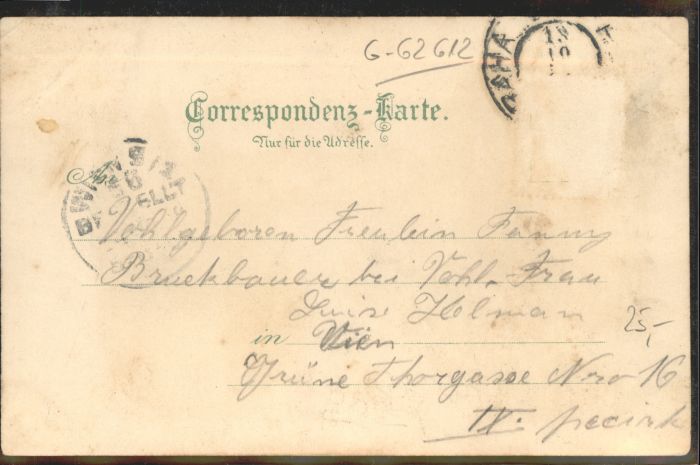 G-62612
PRAHA
18
10
Correspondenz-Karte.
Nur für die Adresse.
An
WIEN
BESTELLT
Vohlgeboren Freulein Fanny
Bruckbauer bei Vohl. Frau
Luise Holman
in Vien
25,-
Grüne Thorgasse Nro 16
IX. pecirk